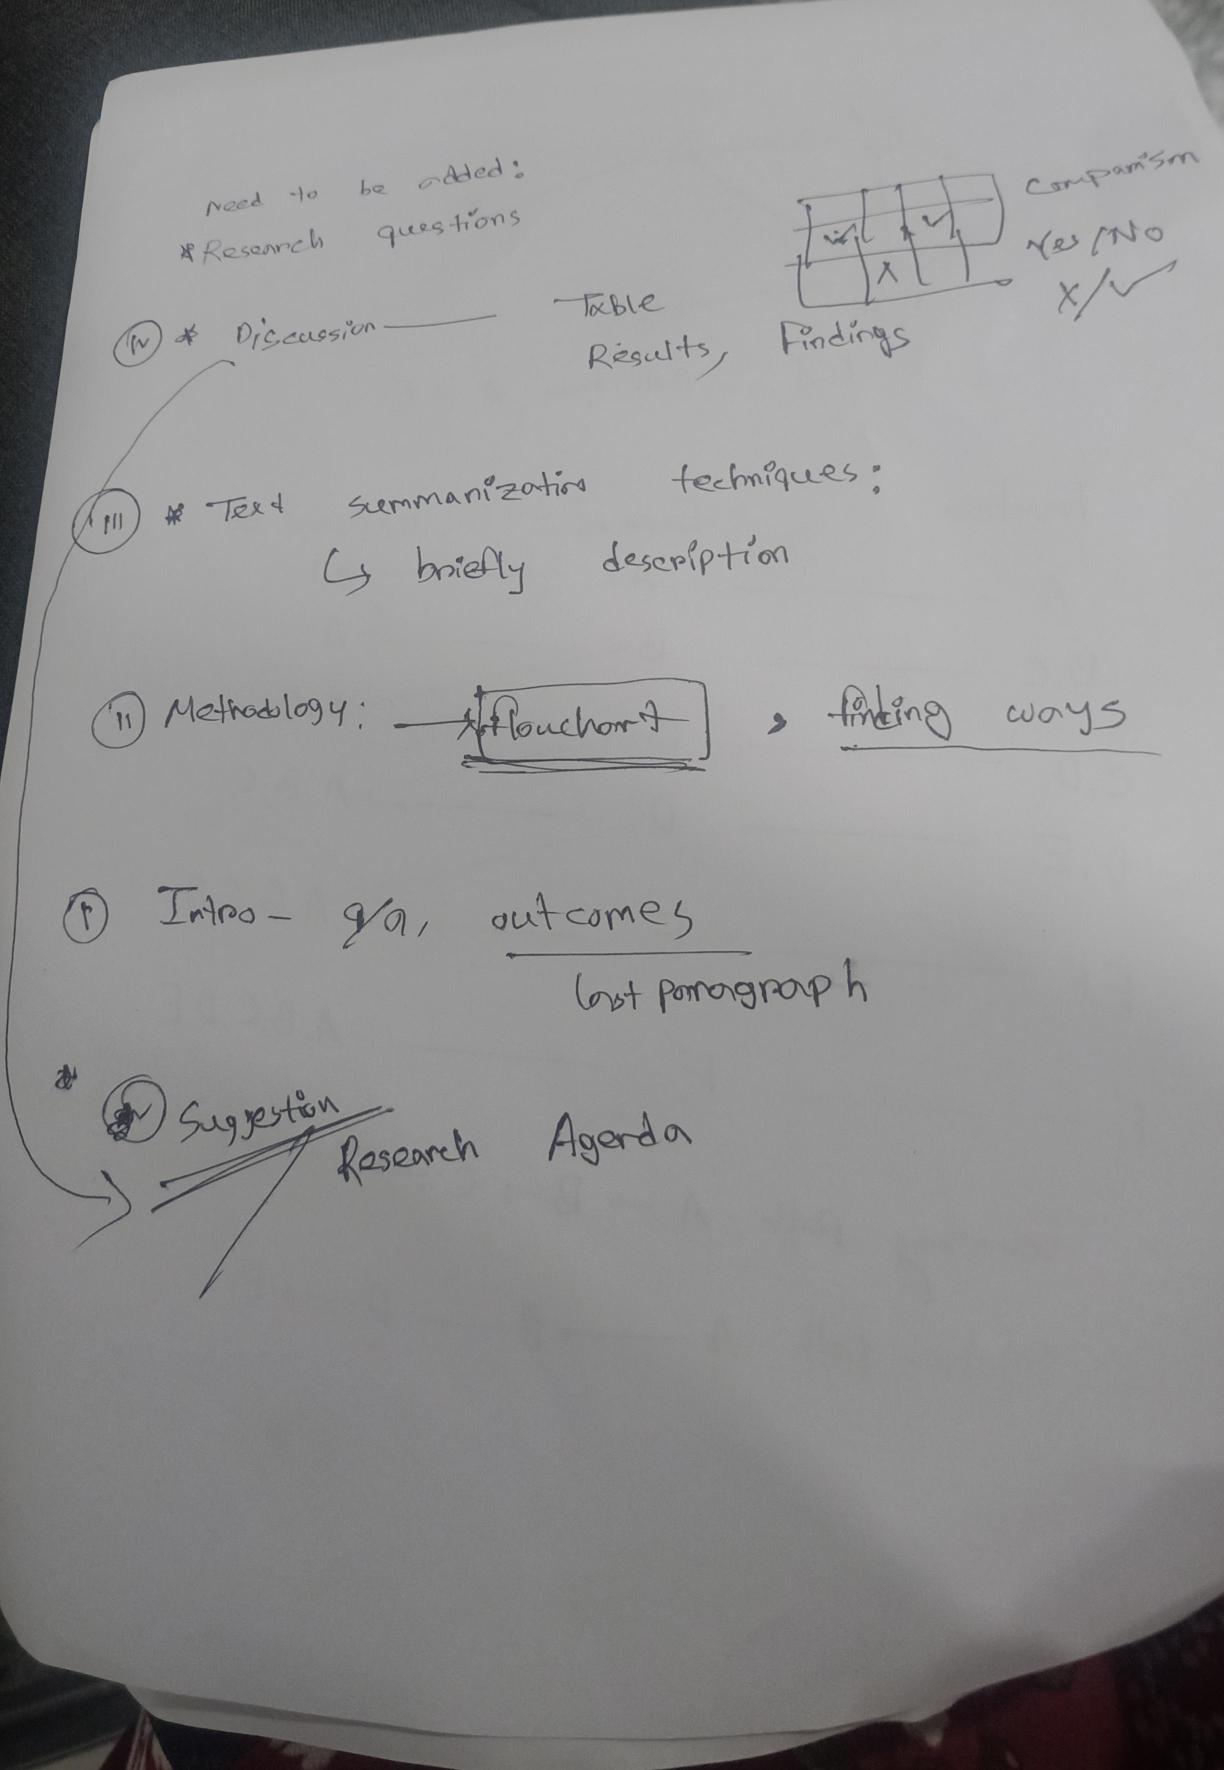 Need to be added:
* Research questions
Comparism
Yes/No
X/✓
(IV) * Discussion — Table
Results, Findings
(III) * Text summarization techniques:
↳ briefly description
(II) Methodology: → flowchart, finding ways
(I) Intro - q/a, outcomes
last paragraph
* Suggestion
Research Agenda